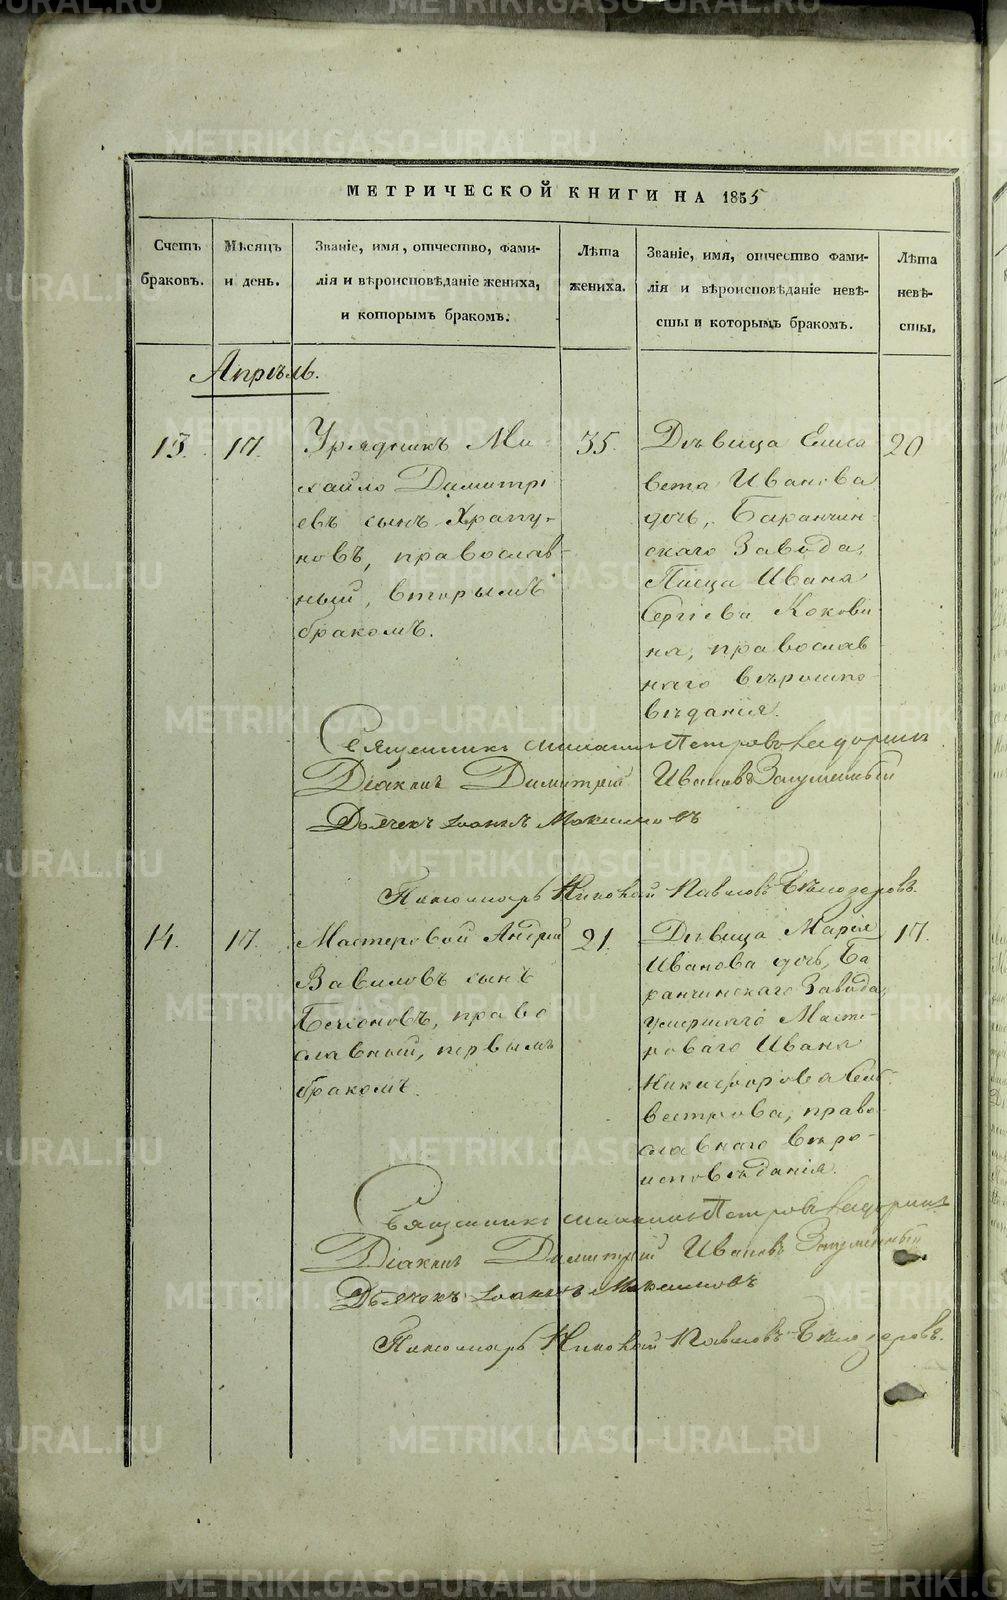 METRIKI.GASO-URAL.RU
МЕТРИЧЕСКОЙ КНИГИ НА 1855
Счетъ браковъ.
Мѣсяцъ и день.
Званіе, имя, отчество, фами-
лія и вѣроисповѣданіе жениха,
и которымъ бракомъ.
Лѣта жениха.
Званіе, имя, отчество фами-
лія и вѣроисповѣданіе невѣ-
сты и которымъ бракомъ.
Лѣта невѣ-
сты.
Апрѣль.
13. 17.
Урядникъ Ми-
хайло Димитрі
евъ сынъ Храпу-
новъ, православ-
ный, вторымъ
бракомъ.
35.
Дѣвица Елиса
вета Иванова
дочь, Баранчин-
скаго Завода,
Писца Ивана
Сергіева Кокови-
на, православ
наго вѣроиспо-
вѣданія.
20
Священникъ Петровъ
Діаконъ Димитрій Ивановъ
Дьячекъ Іоаннъ Максимовъ
Пономарь Николай Павловъ Бѣлозеровъ
14. 17.
Мастеровой Андрей
Вавиловъ сынъ
право
славный, первымъ
бракомъ.
21.
Дѣвица Марія
Иванова дочь, Ба
ранчинскаго Завода,
умершаго Масте-
роваго Ивана
Никифорова Сель-
вестрова, право-
славнаго вѣро-
исповѣданія.
17.
Священникъ Петровъ
Діаконъ Димитрій Ивановъ
Дьячекъ Іоаннъ Максимовъ
Пономарь Николай Павловъ Бѣлозеровъ.